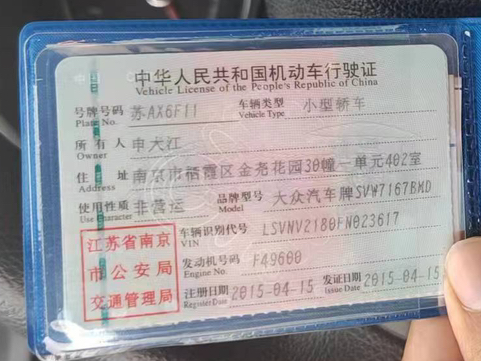 中华人民共和国机动车行驶证
Vehicle License of the People's Republic of China
号牌号码 苏AX6F11 车辆类型 小型轿车
Plate No. Vehicle Type
所有人 申大江
Owner
住址 南京市栖霞区金尧花园30幢一单元402室
Address
使用性质 非营运 品牌型号 大众汽车牌SVW7167BMD
Use Character Model
江苏省南京
市公安局
交通管理局
车辆识别代号 LSVNV2180FN023617
VIN
发动机号码 F49600
Engine No.
注册日期 2015-04-15 发证日期 2015-04-15
Register Date Issue Date